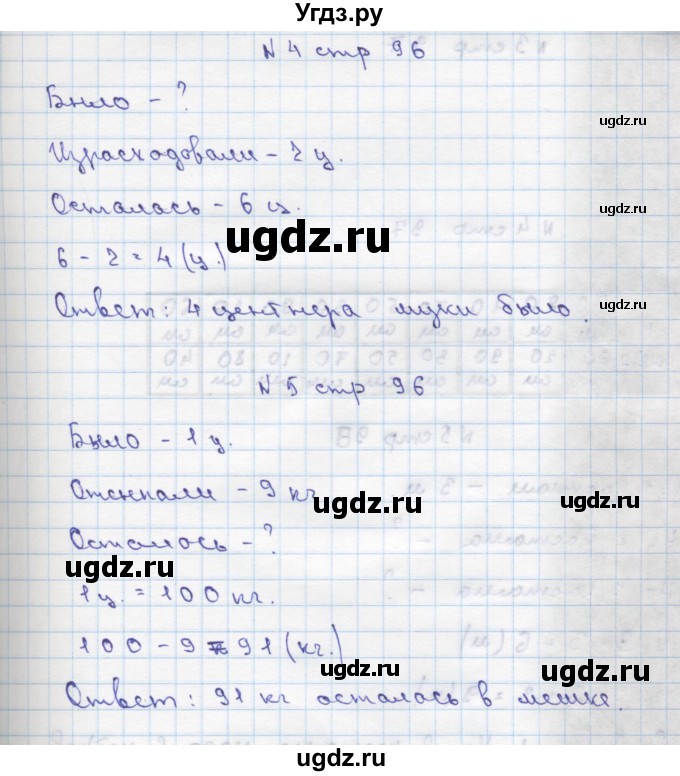 Угдз.ру
N 4 стр 96
ugdz.ru
Было - ?
ugdz.ru
Израсходовали - 2 ц.
Осталась - 6 ц.
ugdz.ru
ugdz.ru
6 - 2 = 4 (ц.)
Ответ: 4 центнера муки было.
ugdz.ru
N 5 стр 96
ugdz.ru
Было - 1 ц.
Отсыпали - 9 кг
ugdz.ru
ugdz.ru
Осталось - ?
ugdz.ru
1 ц. = 100 кг.
100 - 9 = 91 (кг.)
ugdz.ru
ugdz.ru
Ответ: 91 кг осталось в мешке.
ugdz.ru